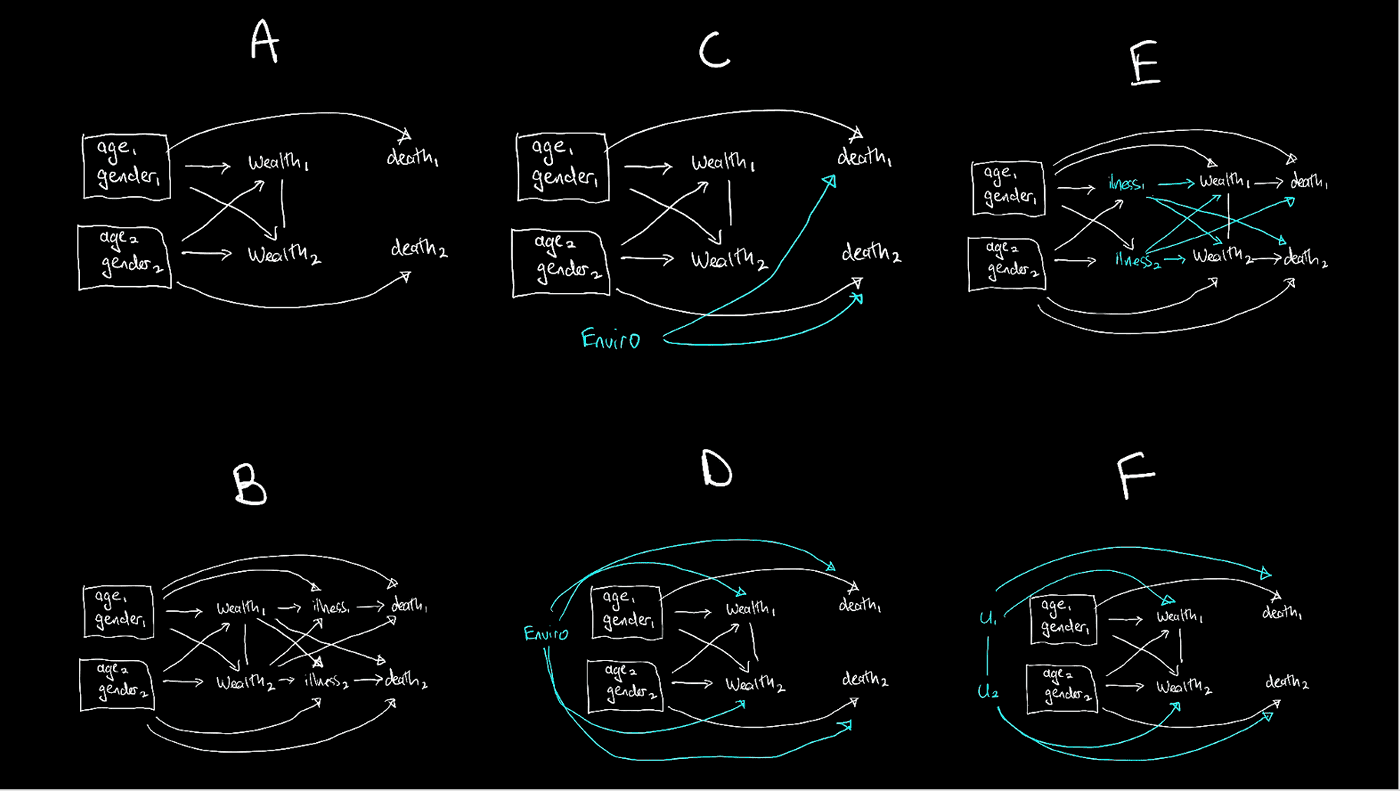 A
age₁
gender₁
wealth₁
death₁
age₂
gender₂
wealth₂
death₂
C
age₁
gender₁
wealth₁
death₁
age₂
gender₂
wealth₂
death₂
Enviro
E
age₁
gender₁
ilness₁
wealth₁
death₁
age₂
gender₂
ilness₂
wealth₂
death₂
B
age₁
gender₁
wealth₁
illness₁
death₁
age₂
gender₂
wealth₂
illness₂
death₂
D
Enviro
age₁
gender₁
wealth₁
death₁
age₂
gender₂
wealth₂
death₂
F
U₁
age₁
gender₁
wealth₁
death₁
U₂
age₂
gender₂
wealth₂
death₂